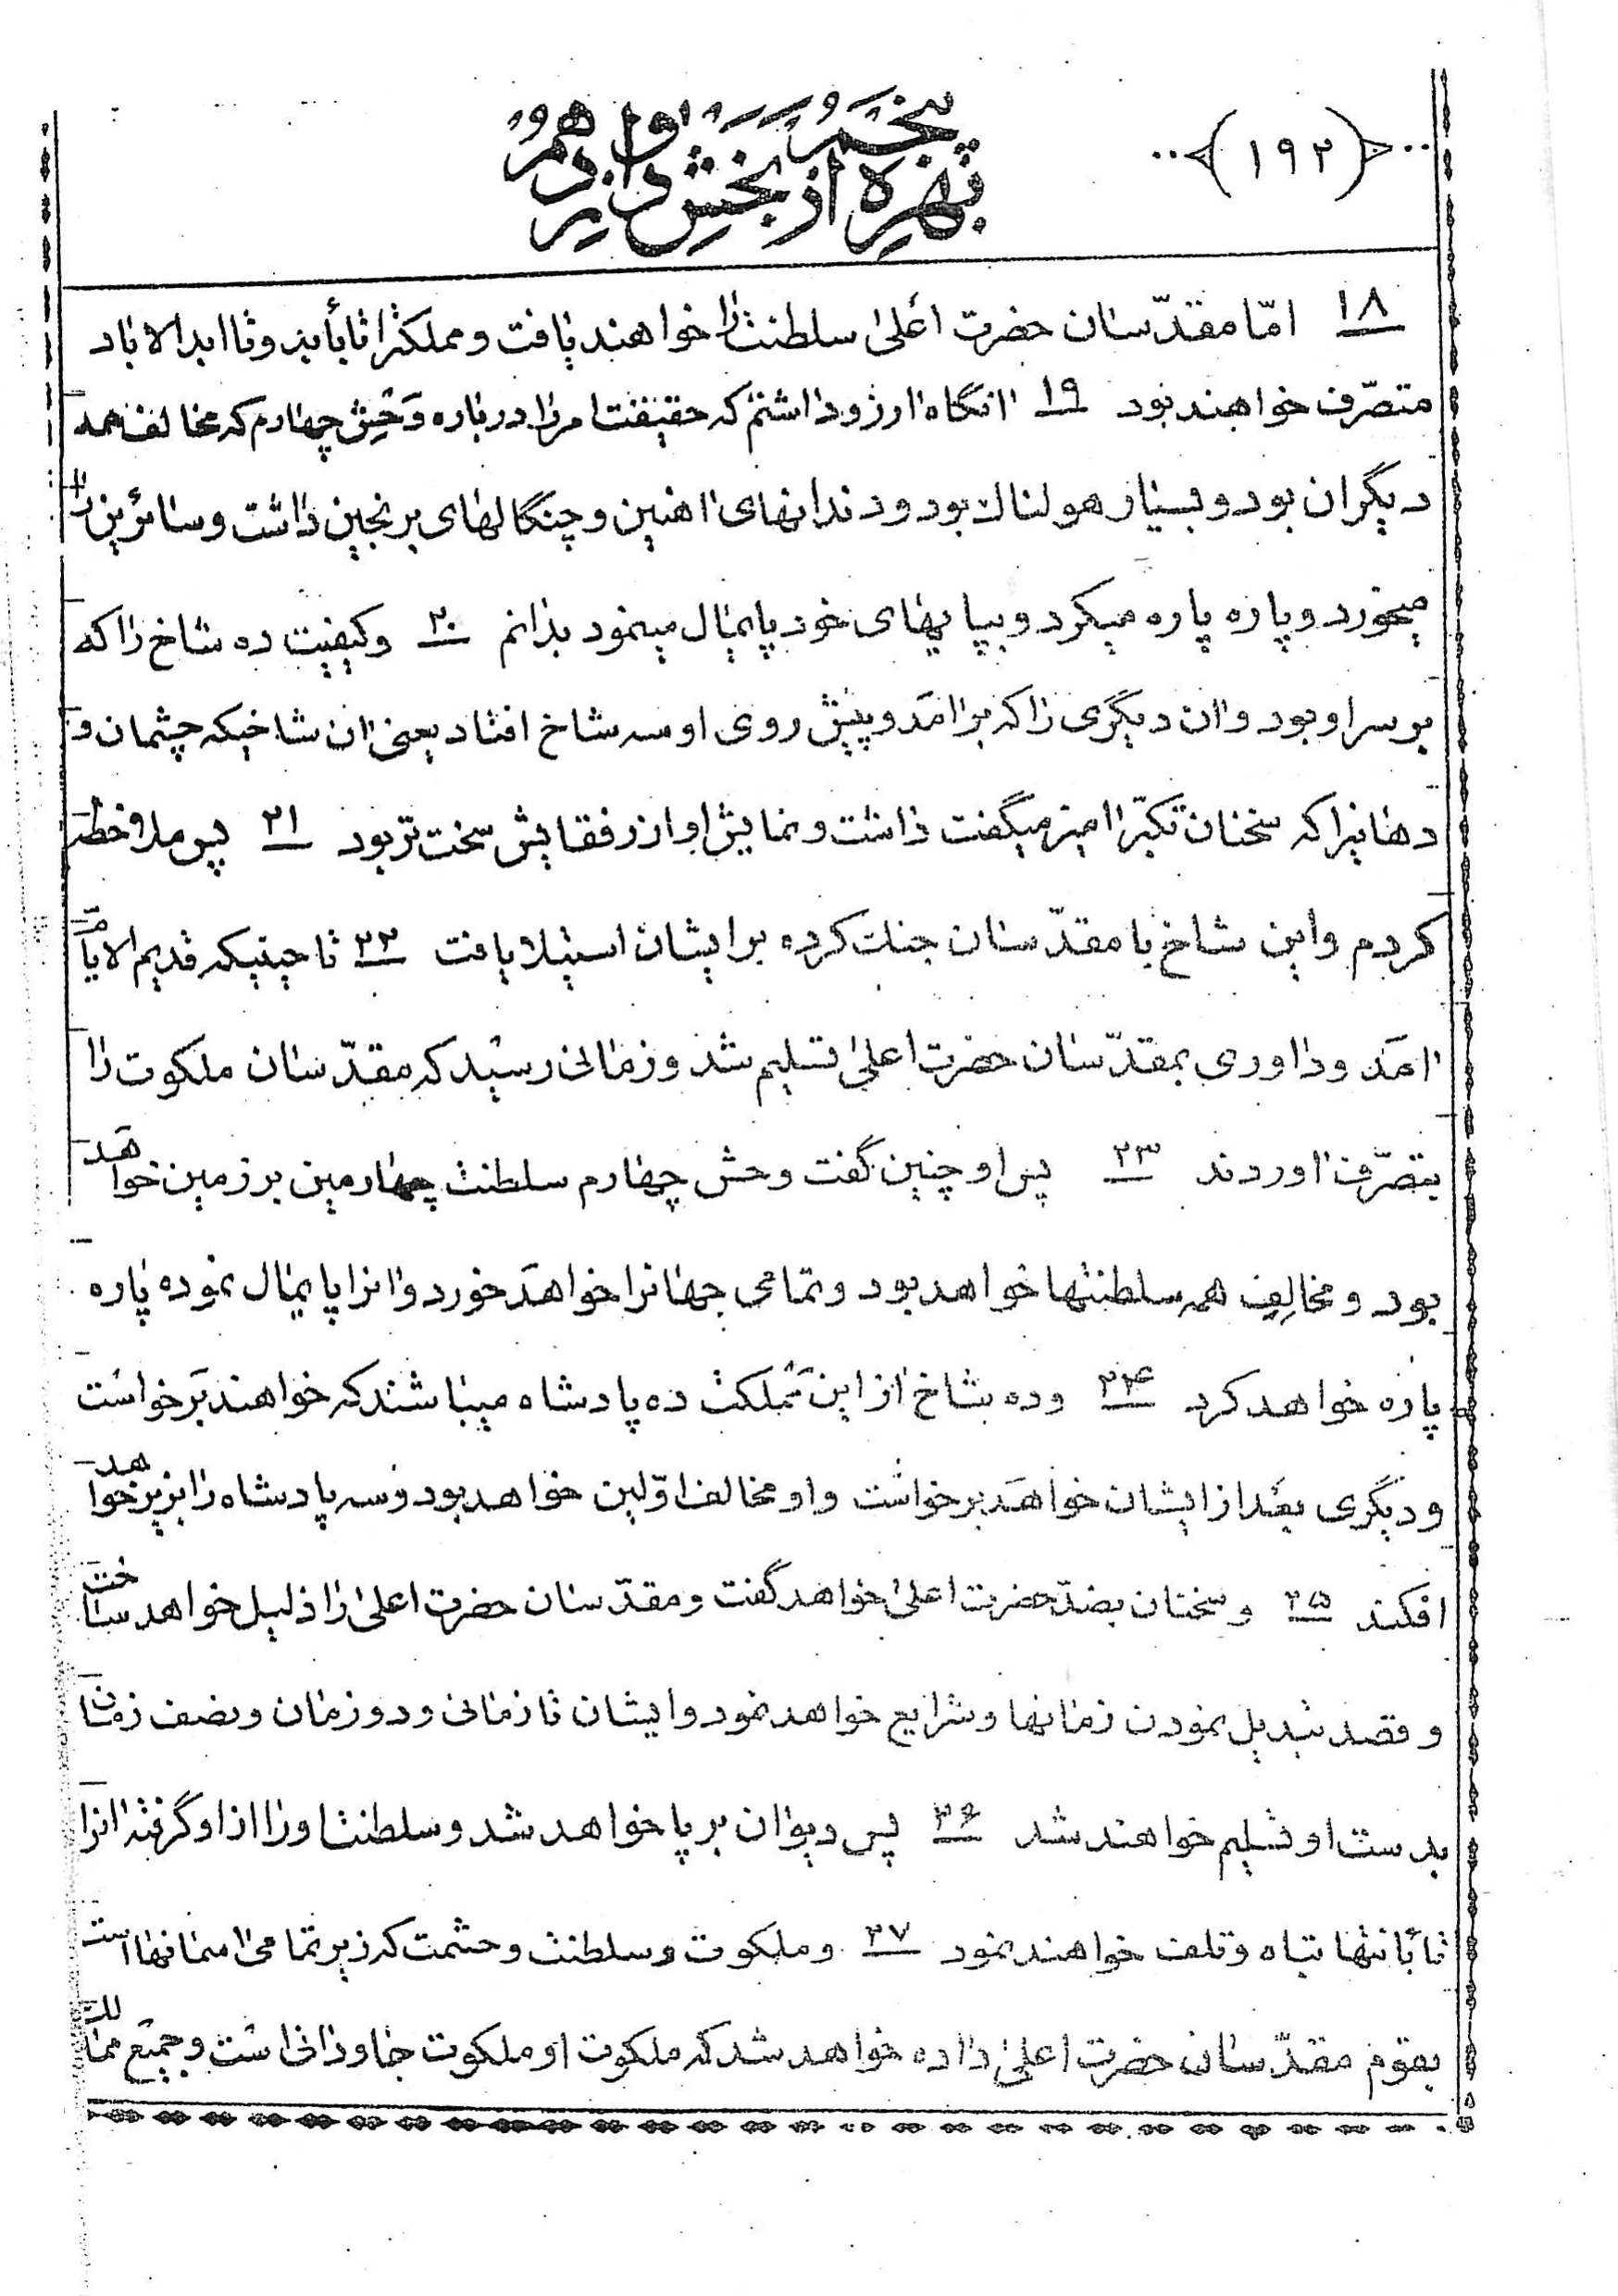 (۱۹۲)
پنجم
بهره از بخش
۱۸ امّا مقدّسان حضرت اعلیٰ سلطنت را خواهند یافت و مملکترا تا بأبد و تا ابدالاباد
متصرّف خواهند بود ۱۹ اانگاه اارزو داشتم که حقیقت امر را درباره وَحِش چهارم که مخالف همه
دیگران بود و بسیار هولناك بود و دندانهای ااهنین و چنگالهای برنجین داشت و سائرین را
میخورد و پاره پاره میکرد و بپایهای خود پایمال مینمود بدانم ۲۰ و کیفیت ده شاخ را که
بر سر او بود و اان دیگری را که براامَد و پیش روی او سه شاخ افتاد یعنی اان شاخیکه چشمان و
دهانیرا که سخنان تکبّر اامیز میگفت داشت و نمایش او از رفقایش سخت تر بود ۲۱ پس ملاحظه
کردم و این شاخ با مقدّسان جنك کرده بر ایشان استیلا یافت ۲۲ تا حینیکه قدیم الایّام
اامَد و داوری بمقدّسان حضرت اعلیٰ تسلیم شد و زمانی رسید که مقدّسان ملکوت را
بتصرّف ااوردند ۲۳ پس او چنین گفت وحش چهارم سلطنت چهارمین بر زمین خواهَد
بود و مخالِفِ همه سلطنتها خواهد بود و تمامی جهانرا خواهَد خورد و اانرا پایمال نموده پاره
پاره خواهد کرد ۲۴ و ده شاخ از این مَملکت ده پادشاه میباشند که خواهند بَرخواست
و دیگری بعَد از ایشان خواهَد برخواست و او مخالف اوّلین خواهد بود و سه پادشاه را بزیر خواهد
افکند ۲۵ و سخنان بضدّ حضرت اعلیٰ خواهد گفت و مقدّسان حضرت اعلیٰ را ذلیل خواهد ساخت
و قصد تبدیل نمودن زمانها و شرایع خواهد نمود و ایشان تا زمانی و دو زمان و نصف زمان
بدست او تسلیم خواهند شد ۲۶ پس دیوان بر پا خواهد شد و سلطنت او را از او گرفته اانرا
تا بانتها تباه و تلف خواهند نمود ۲۷ و ملکوت و سلطنت و حشمت که زیر تمامی ااسمانها است
بقوم مقدّسان حضرت اعلیٰ داده خواهد شد که ملکوت او ملکوت جاودانی است و جمیَع ممالك